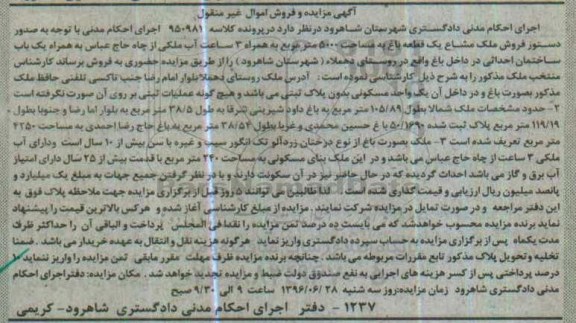 آگهی مزایده و فروش اموال غیر منقول
اجرای احکام مدنی دادگستری شهرستان شاهرود درنظر دارد درپرونده کلاسه ۹۵۰۹۸۷ اجرای احکام مدنی با توجه به صدور
دستور فروش ملک مشاع یک قطعه باغ به مساحت ۵۰۰۰ متر مربع به همراه ۳ ساعت آب ملکی از چاه حاج عباس به همراه یک باب
ساختمان احداثی در داخل باغ واقع در روستای دهملاء (شهرستان شاهرود) را از طریق مزایده حضوری به فروش برساند کارشناس
منتخب ملک مذکور را به شرح ذیل کارشناسی نموده است: آدرس ملک روستای دهملا بلوار امام رضا جنب تاکسی تلفنی حافظ ملک
مذکور بصورت باغ و در داخل آن یک واحد مسکونی بدون پلاک ثبتی می باشد و هیچ گونه عملیات ثبتی بر روی آن صورت نگرفته است
۲- حدود مشخصات ملک شمالا بطول ۱۰۵/۸۹ متر مربع به باغ داود شیزینی شرقا به طول ۳۸/۵ متر مربع به بلوار اما رضا و جنوبا بطول
۱۱۹/۱۹ متر مربع پلاک ثبت شده ۵۰/۱۳۹۰ با غ حسین محمدی و غربا بطول ۳۸/۵۴ متر مربع به باغ حاج رضا احمدی به مساحت ۴۲۵۰
متر مربع تعریف شده است ۳- ملک بصورت باغ از نوع درختان زردآلو تک انگور سیب و غیره با سن بیش از ۱۰ سال است ودارای آب
ملکی ۳ ساعت از چاه حاج عباس می باشد و در این ملک بنای مسکونی به مساحت ۲۴۰ متر مربع با قدمت بیش از ۲۵ سال دارای امتیاز
آب برق و گاز می باشد احداث گردیده که در حال حاضر نیز در آن سکونت دارند و با در نظر گرفتن جمیع جهات به مبلغ یک میلیارد و
پانصد میلیون ریال ارزیابی و قیمت گذاری شده است. لذا طالبین می توانند ۵ روز قبل از برگزاری مزایده جهت ملاحظه پلاک فوق به
این دفتر مراجعه و در صورت تمایل در مزایده شرکت نمایند. مزایده از مبلغ کارشناسی آغاز شده و هرکس بالاترین قیمت را پیشنهاد
نماید برنده مزایده محسوب خواهدشد که می بایست ده درصد ثمن مزایده را نقدا فی المجلس پرداخت و الباقی آن را حداکثر ظرف
مدت یکماه پس از برگزاری مزایده به حساب سپرده دادگستری واریز نماید هرگونه هزینه نقل و انتقال به عهده خریدار می باشد. ضمنا
تخلیه و تحویل پلاک مذکور تابع مقررات مربوطه می باشد. چنانچه برنده مزایده ظرف مهلت مقرر مابقی ثمن مزایده را واریز ننماید ۱۰
درصد پرداختی پس از کسر هزینه های اجرایی به نفع صندوق دولت ضبط و مزایده تجدید خواهد شد. مکان مزایده: دفتراجرای احکام
مدنی دادگستری شاهرود زمان مزایده:روز سه شنبه ۱۳۹۶/۰۶/۲۸ ساعت ۹ الی ۹/۳۰ صبح
۱۲۳۷- دفتر اجرای احکام مدنی دادگستری شاهرود- کریمی